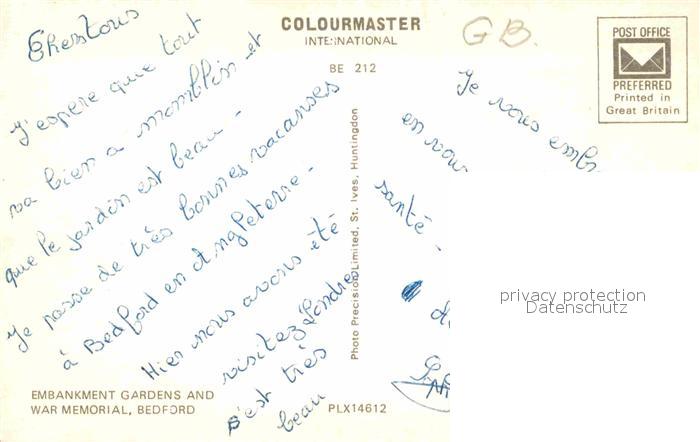 COLOURMASTER
INTERNATIONAL
BE 212
GB.
POST OFFICE
PREFERRED
Printed in
Great Britain
Chers tous
J'espère que tout
va bien a momblin et
que le jardin est beau -
Je passe de très bonnes vacances
à Bedford en Angleterre -
Hier nous avons été
visitez Londres
c'est très
beau
Je vous emb
en vou
santé -
Photo Precision Limited, St. Ives, Huntingdon
privacy protection
Datenschutz
EMBANKMENT GARDENS AND
WAR MEMORIAL, BEDFORD
PLX14612